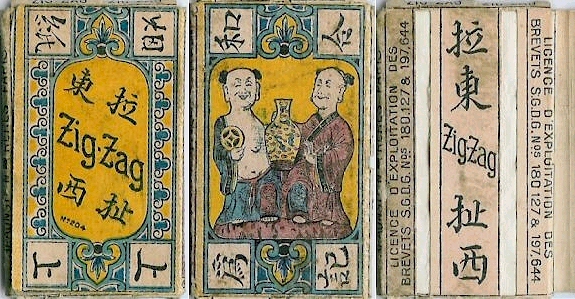 東 拉
Zig-Zag
西 扯
No 204
和 合
為 記
LICENCE D'EXPLOITATION DES
BREVETS S.G.D.G. Nos 180.127 & 197,644
拉
東
Zig-Zag
扯
西
LICENCE D'EXPLOITATION DES
BREVETS S.G.D.G. Nos 180 127 & 197,644